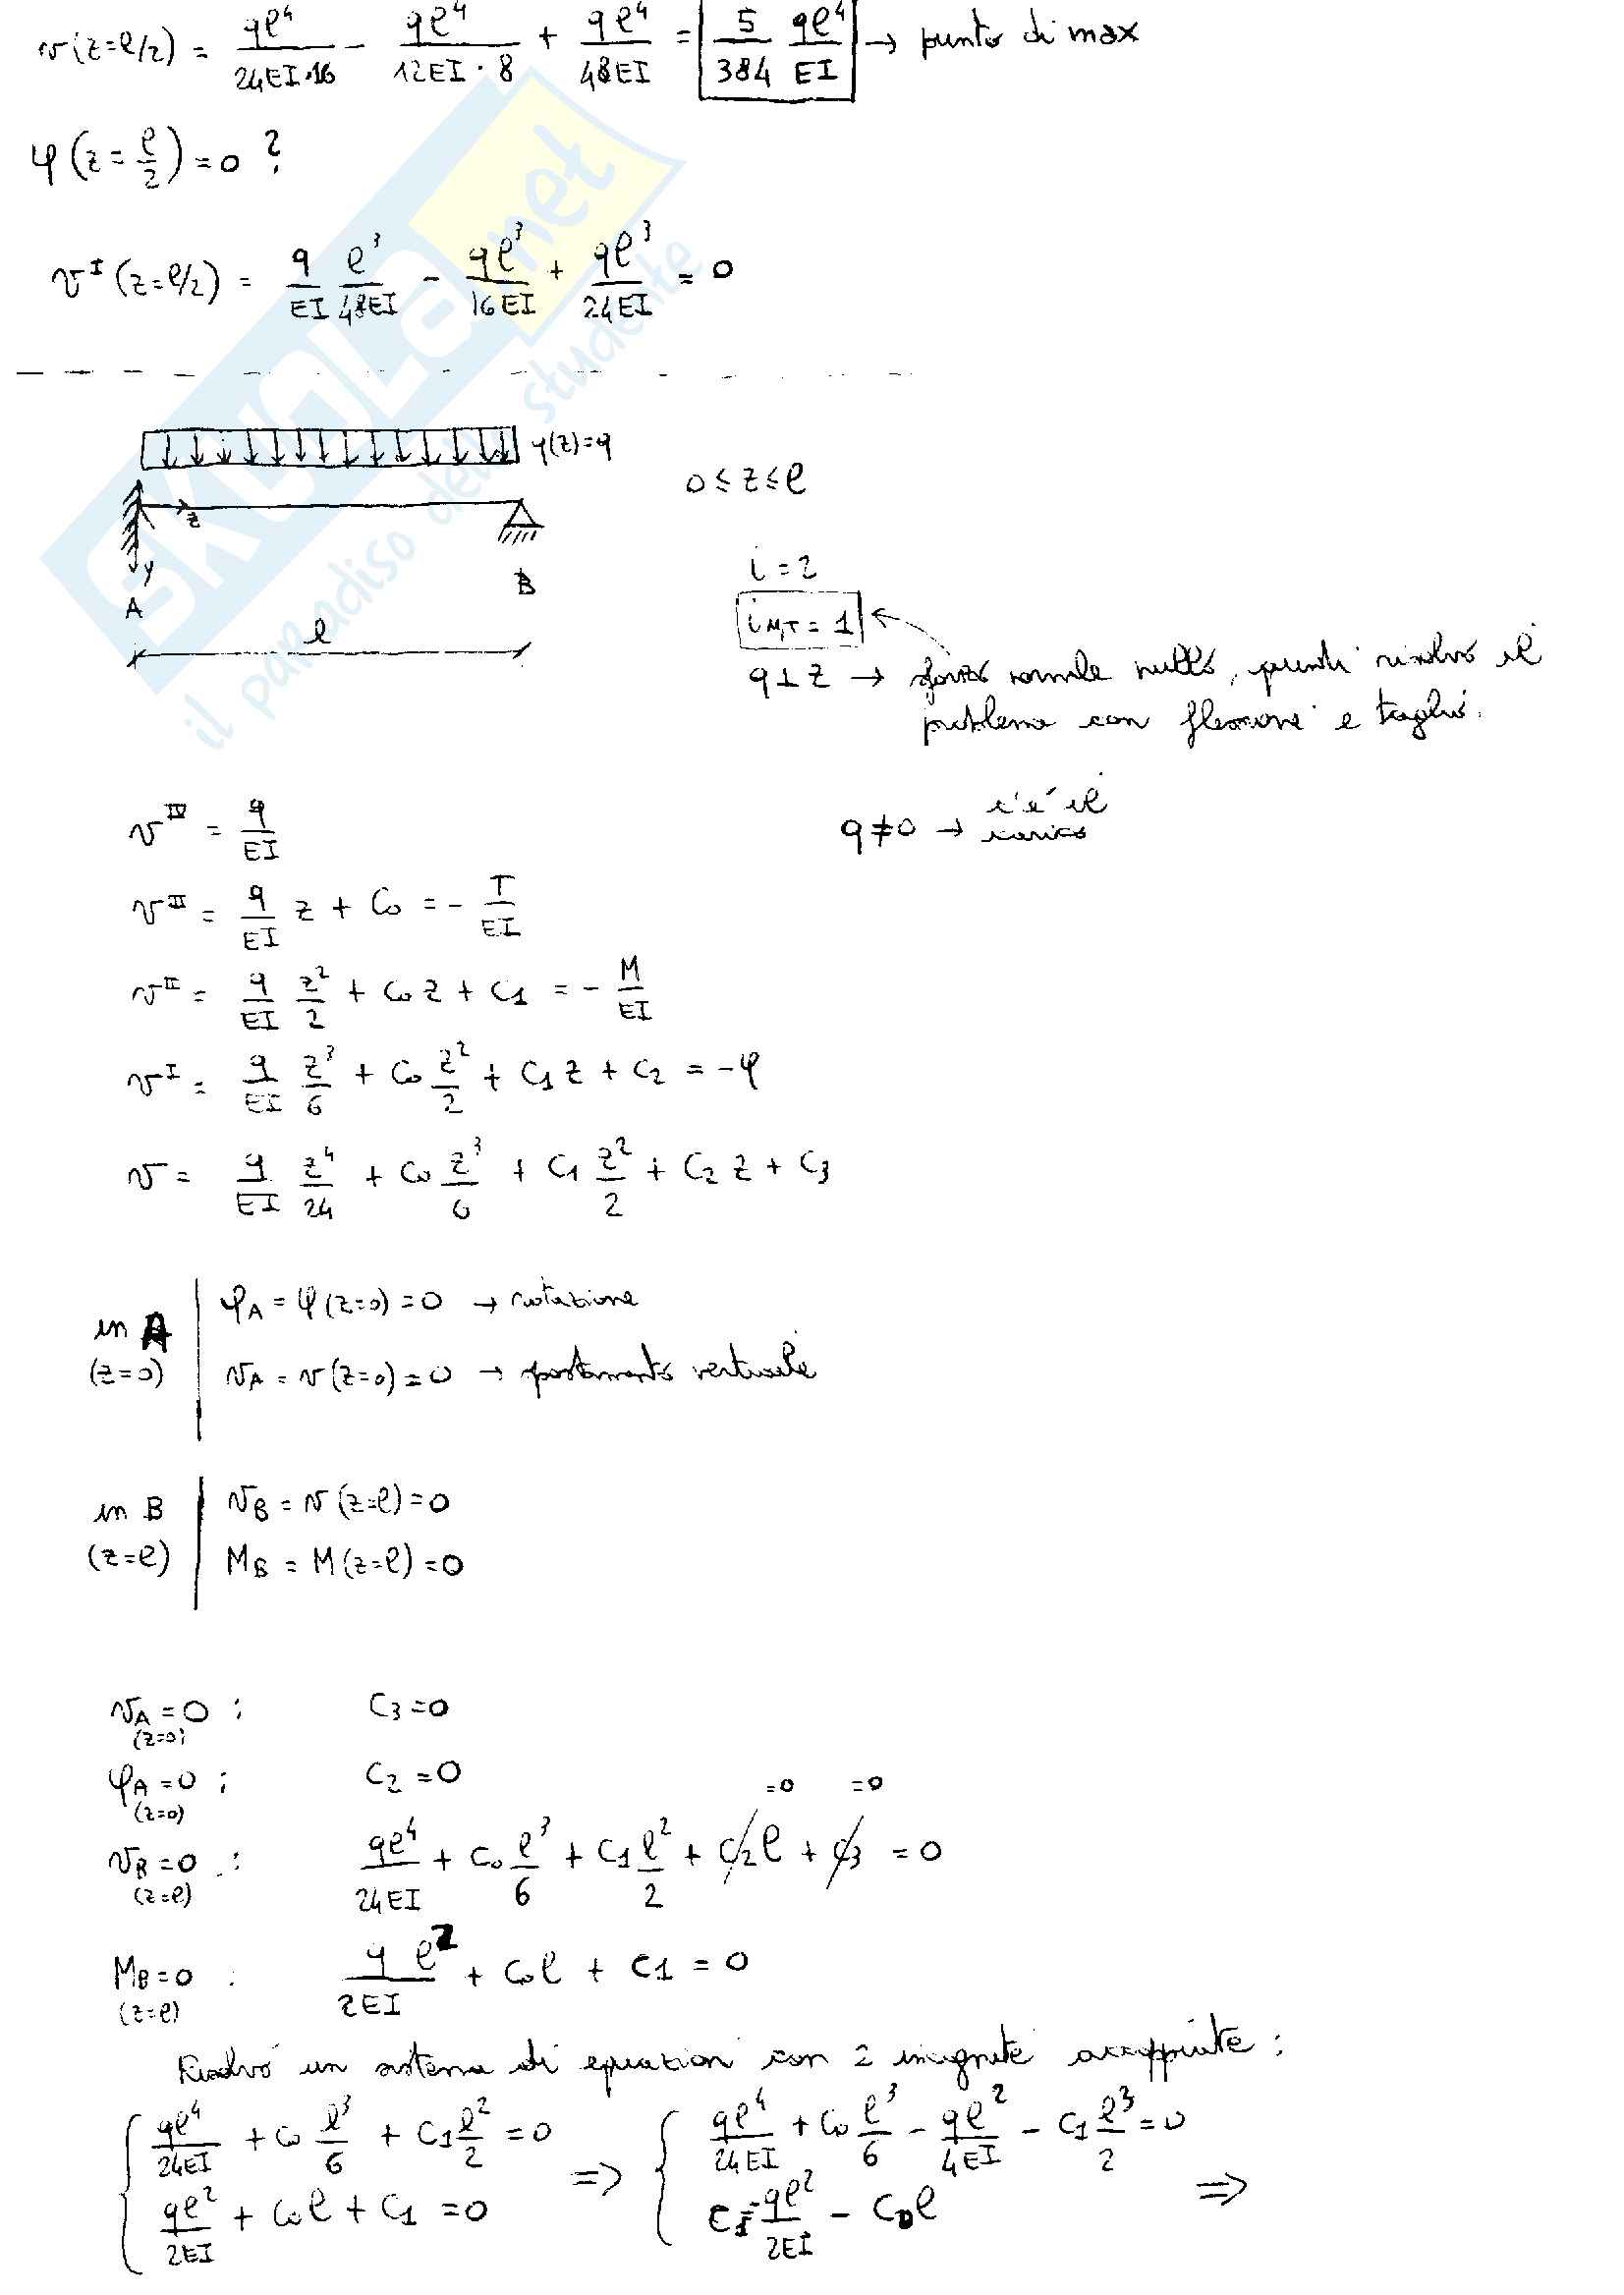 v(z=ℓ/2) = qℓ⁴/24EI·16 − qℓ⁴/12EI·8 + qℓ⁴/48EI = 5/384 qℓ⁴/EI → punto di max
φ(z=ℓ/2)=0 ?
vᴵ(z=ℓ/2) = q/EI ℓ³/48EI − qℓ³/16EI + qℓ³/24EI = 0
q(z)=q
0≤z≤ℓ
z
y
A
B
ℓ
i=2
i_M,T=1
q⊥z → sforzo normale nullo, quindi risolvo il
problema con flessione e taglio.
vᴵⱽ = q/EI
q≠0 → c'è il
carico
vᴵᴵᴵ = q/EI z + C₀ = − T/EI
vᴵᴵ = q/EI z²/2 + C₀z + C₁ = − M/EI
vᴵ = q/EI z³/6 + C₀ z²/2 + C₁z + C₂ = −φ
v = q/EI z⁴/24 + C₀ z³/6 + C₁ z²/2 + C₂z + C₃
in A (z=0)
φ_A = φ(z=0)=0 → rotazione
v_A = v(z=0)=0 → spostamento verticale
in B (z=ℓ)
v_B = v(z=ℓ)=0
M_B = M(z=ℓ)=0
v_A=0 (z=0) : C₃=0
φ_A=0 (z=0) : C₂=0
=0 =0
v_B=0 (z=ℓ) : qℓ⁴/24EI + C₀ ℓ³/6 + C₁ ℓ²/2 + C₂ℓ + C₃ = 0
M_B=0 (z=ℓ) : qℓ²/2EI + C₀ℓ + C₁ = 0
Risolvo un sistema di equazioni con 2 incognite accoppiate :
{ qℓ⁴/24EI + C₀ ℓ³/6 + C₁ ℓ²/2 = 0 => { qℓ⁴/24EI + C₀ ℓ³/6 − qℓ²/4EI − C₁ ℓ³/2 = 0 =>
qℓ²/2EI + C₀ℓ + C₁ = 0 C₁=−qℓ²/2EI − C₀ℓ
SKUOLA.net
il paradiso dello studente